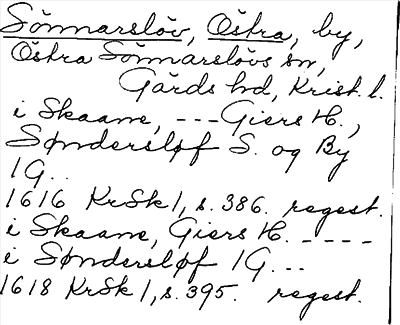 Sönnarslöv, Östra, by,
Östra Sönnarslövs sn,
Gärds hd, Krist. l.
i Skaane, --- Giers H.,
Søndersløf S. og By
1G..
1616 KrSk 1, s. 386. regest.
i Skaane, Giers H. -----
i Søndersløf 1G...
1618 KrSk 1, s. 395. regest.